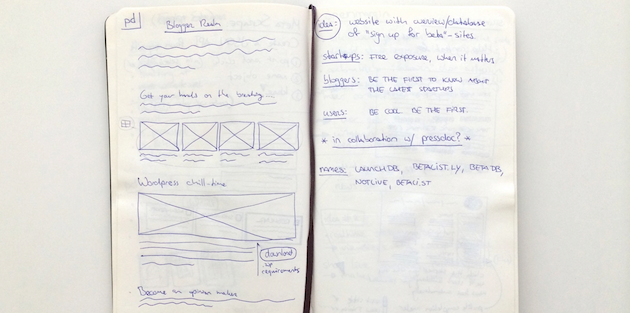 pd
Blogger Room
Get your hands on the
Wordpress chill-time
download
requirements
Become an opinion maker
idea: website with overview/database
of "sign up for beta"-sites.
startups: FREE EXPOSURE, WHEN IT MATTERS
bloggers: BE THE FIRST TO KNOW ABOUT
THE LATEST STARTUPS
users: BE COOL BE THE FIRST.
* in collaboration w/ pressdoc? *
names: LAUNCHDB, BETALIST.LY, BETADB,
NOTLIVE, BETALIST